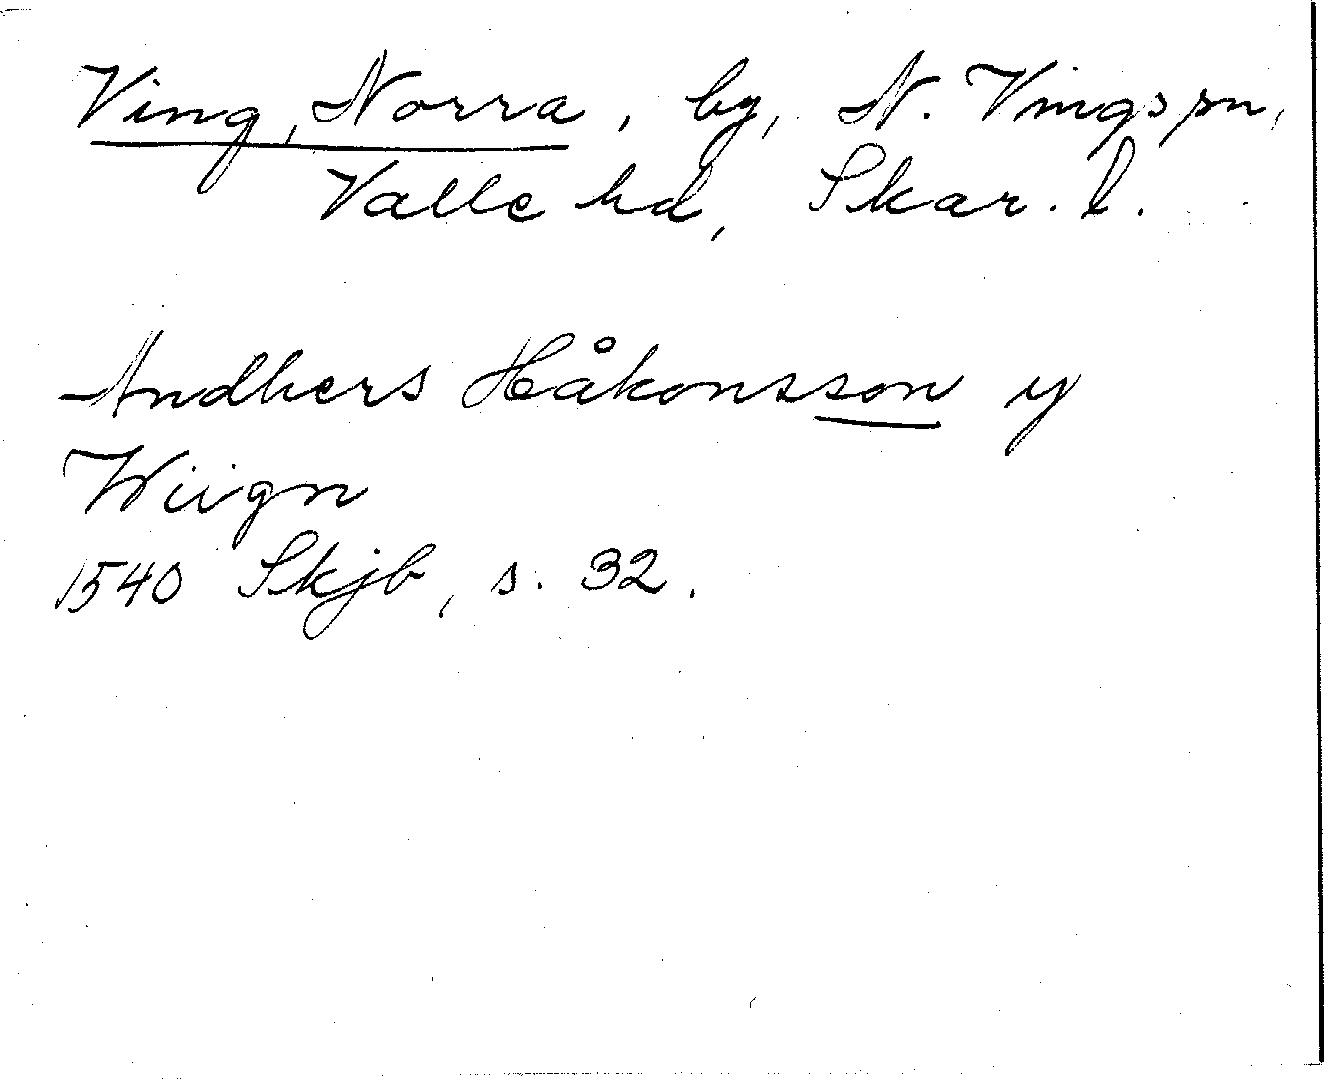 Ving, Norra, by, N. Vings sn,
Valle hd, Skar. l.
Andhers Håkonsson y
Wiign
1540 Skjb, s. 32.